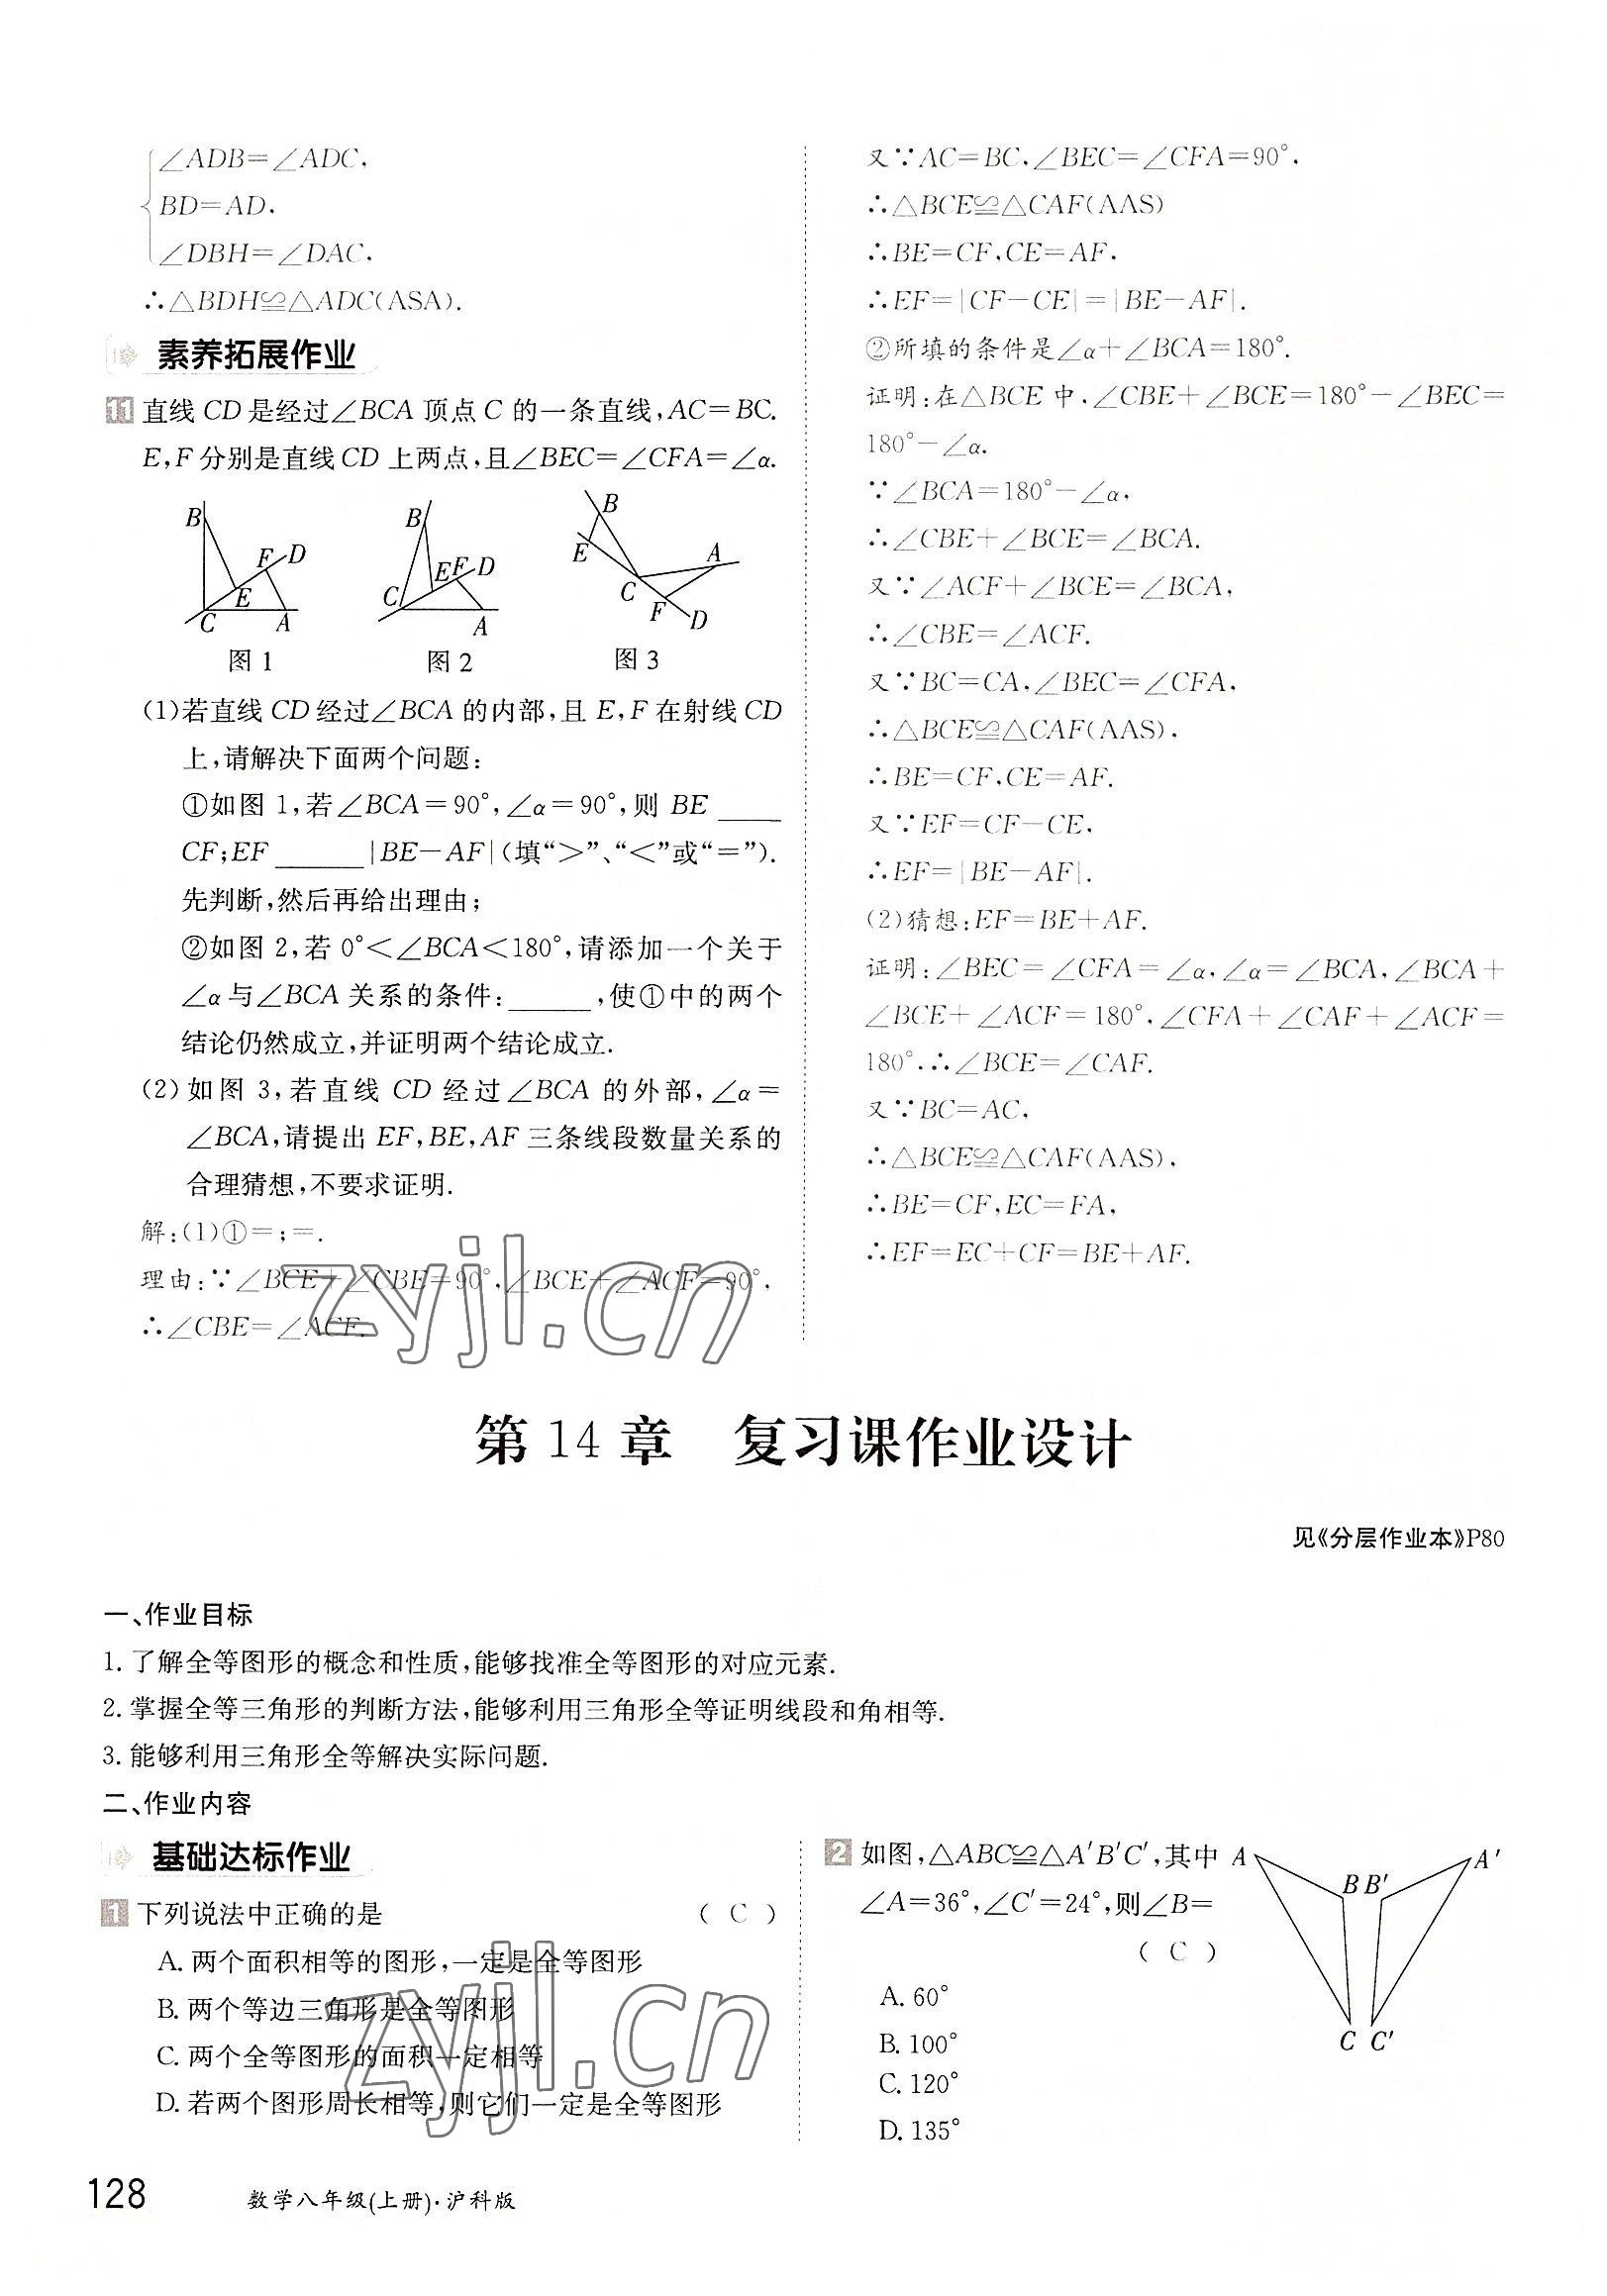 ∠ADB=∠ADC,
BD=AD,
∠DBH=∠DAC,
∴△BDH≌△ADC(ASA).
素养拓展作业
11 直线 CD 是经过∠BCA 顶点 C 的一条直线,AC=BC.
E,F 分别是直线 CD 上两点,且∠BEC=∠CFA=∠α.
B F D E C A
图 1
B E F D C A
图 2
B E A C F D
图 3
(1)若直线 CD 经过∠BCA 的内部,且 E,F 在射线 CD
上,请解决下面两个问题:
①如图 1,若∠BCA=90°,∠α=90°,则 BE ____
CF;EF ______ |BE-AF|(填“>”、“<”或“=”).
先判断,然后再给出理由;
②如图 2,若 0°<∠BCA<180°,请添加一个关于
∠α与∠BCA 关系的条件:______,使①中的两个
结论仍然成立,并证明两个结论成立.
(2)如图 3,若直线 CD 经过∠BCA 的外部,∠α=
∠BCA,请提出 EF,BE,AF 三条线段数量关系的
合理猜想,不要求证明.
解:(1)①=;=.
理由:∵∠BCE+∠CBE=90°,∠BCE+∠ACF=90°,
∴∠CBE=∠ACF.
又∵AC=BC,∠BEC=∠CFA=90°,
∴△BCE≌△CAF(AAS)
∴BE=CF,CE=AF,
∴EF=|CF-CE|=|BE-AF|.
②所填的条件是∠α+∠BCA=180°.
证明:在△BCE 中,∠CBE+∠BCE=180°-∠BEC=
180°-∠α.
∵∠BCA=180°-∠α,
∴∠CBE+∠BCE=∠BCA.
又∵∠ACF+∠BCE=∠BCA,
∴∠CBE=∠ACF.
又∵BC=CA,∠BEC=∠CFA,
∴△BCE≌△CAF(AAS),
∴BE=CF,CE=AF.
又∵EF=CF-CE,
∴EF=|BE-AF|.
(2)猜想:EF=BE+AF.
证明:∠BEC=∠CFA=∠α,∠α=∠BCA,∠BCA+
∠BCE+∠ACF=180°,∠CFA+∠CAF+∠ACF=
180°,∴∠BCE=∠CAF.
又∵BC=AC,
∴△BCE≌△CAF(AAS),
∴BE=CF,EC=FA,
∴EF=EC+CF=BE+AF.
zyjl.cn
第 14 章 复习课作业设计
见《分层作业本》P80
一、作业目标
1. 了解全等图形的概念和性质,能够找准全等图形的对应元素.
2. 掌握全等三角形的判断方法,能够利用三角形全等证明线段和角相等.
3. 能够利用三角形全等解决实际问题.
二、作业内容
基础达标作业
1 下列说法中正确的是 ( C )
A. 两个面积相等的图形,一定是全等图形
B. 两个等边三角形是全等图形
C. 两个全等图形的面积一定相等
D. 若两个图形周长相等,则它们一定是全等图形
zyjl.cn
2 如图,△ABC≌△A′B′C′,其中
∠A=36°,∠C′=24°,则∠B=
( C )
A. 60°
B. 100°
C. 120°
D. 135°
A A′ B B′ C C′
128
数学八年级(上册)·沪科版